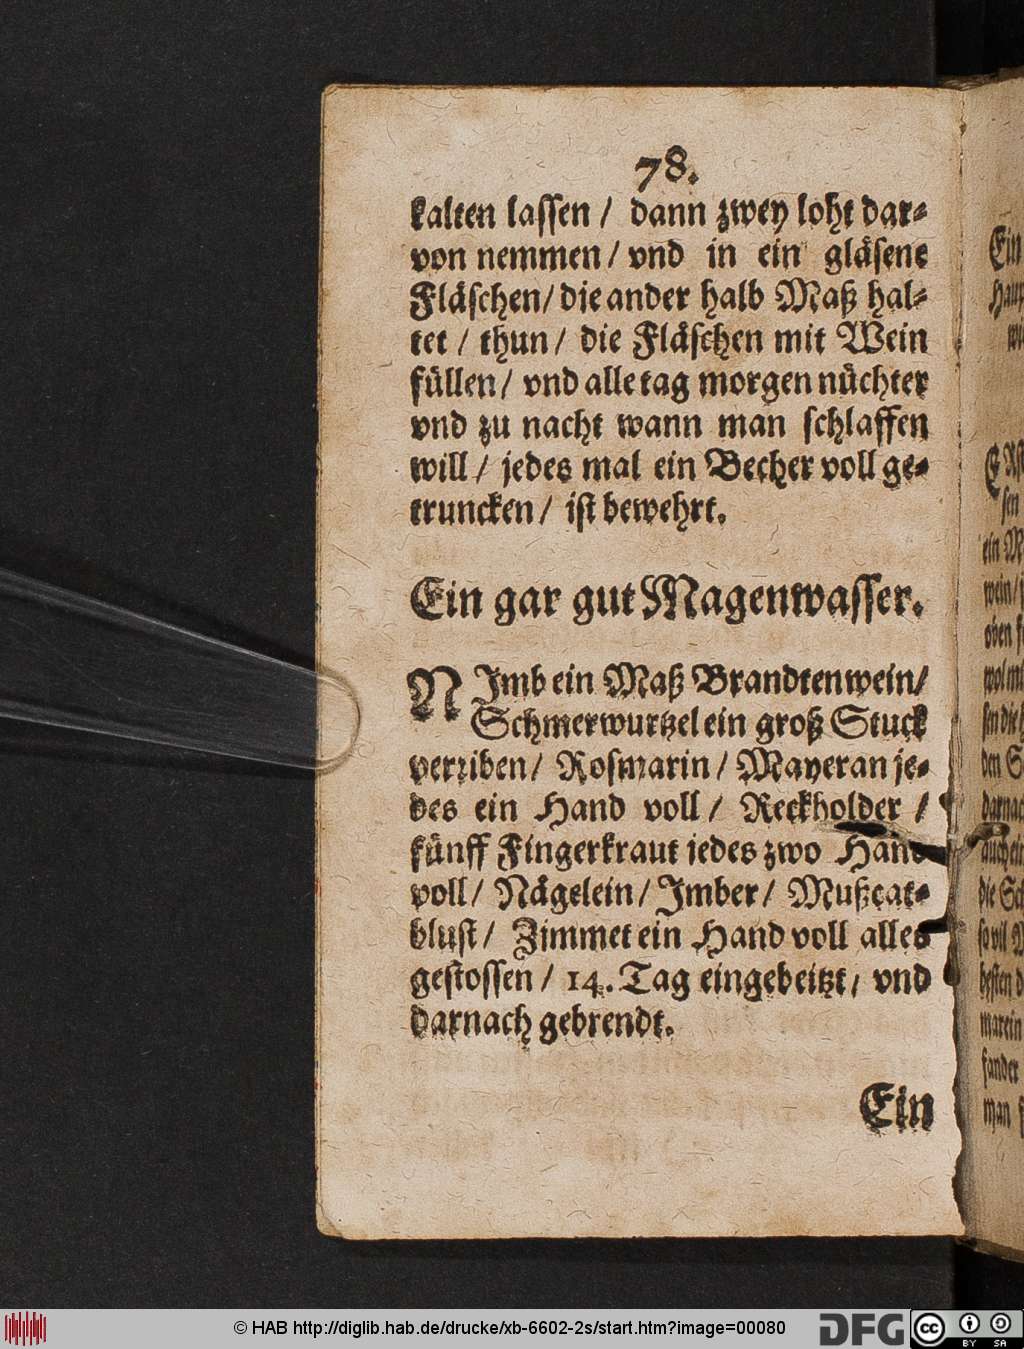 78.
kalten lassen / dann zwey loht dar-
von nemmen / vnd in ein gläsene
Fläschen / die ander halb Maß hal-
tet / thun / die Fläschen mit Wein
füllen / vnd alle tag morgen nüchter
vnd zu nacht wann man schlaffen
will / jedes mal ein Becher voll ge-
truncken / ist bewehrt.
Ein gar gut Magenwasser.
NImb ein Maß Brandtenwein /
Schmerwurtzel ein groß Stuck
verriben / Rosmarin / Mayeran je-
des ein Hand voll / Reckholder /
fünff Fingerkraut jedes zwo Hand
voll / Nägelein / Imber / Mußcat-
blust / Zimmet ein Hand voll alles
gestossen / 14. Tag eingebeitzt, vnd
darnach gebrendt.
Ein
Ein
ein
wein /
oben
den
die
so vil
besten
man
© HAB http://diglib.hab.de/drucke/xb-6602-2s/start.htm?image=00080
DFG
cc BY SA